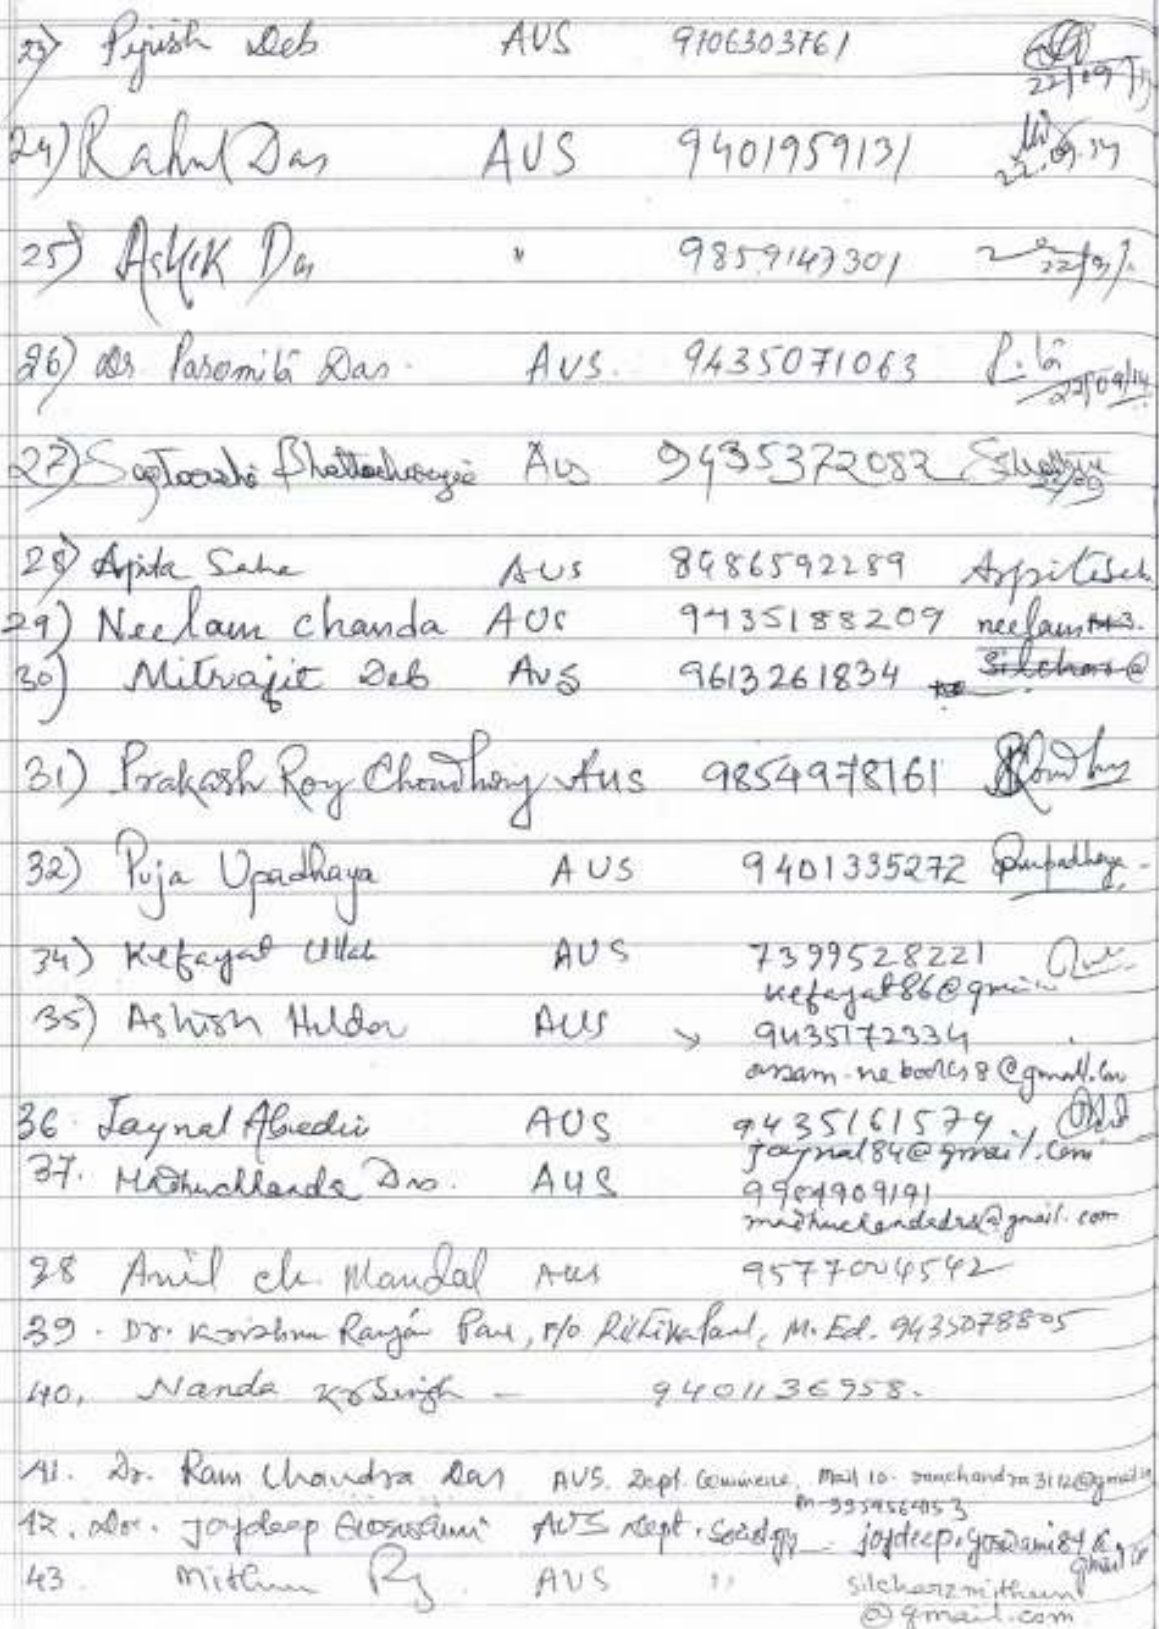 23) Pijush Deb AUS 9706303761 22/09/14
24) Rahul Das AUS 9401959131 22.09.14
25) Ashik Das " 9859143301 22/9/
26) Dr. Paromita Das. AUS. 9435071063 22/09/14
27) Bhattacharjee AUS 9435372082
28) Arpita Saha AUS 8486592289 Arpitasah
29) Neelam Chanda AUS 9435188209 neelam
30) Mitrajit Deb AUS 9613261834 Silchar@
31) Prakash Roy Choudhury AUS 9854978161
32) Puja Upadhaya AUS 9401335272 Pupadhaya
34) Kefayat Ullah AUS 7399528221
kefayat86@gmail
35) Ashish Haldar AUS 9435172334
36. Jaynal Abedin AUS 9435161574
jaynal84@gmail.com
37. Madhuchhanda Das. AUS
madhuchandadas@gmail.com
38 Anil Ch. Mandal AUS 9577004542
39. Dr. Krishna Ranjan Paul, F/o Ritika Paul, M.Ed. 9435078805
40. Nanda Kr Singh - 9401136958.
41. Dr. Ram Chandra Das AUS. Dept. Commerce, Mail ID- ramchandra3112@gmail
42. Dr. Joydeep Goswami AUS Dept. Sociology joydeep.goswami84@
gmail
43. Mithun Roy AUS " silcharzmithun
@gmail.com